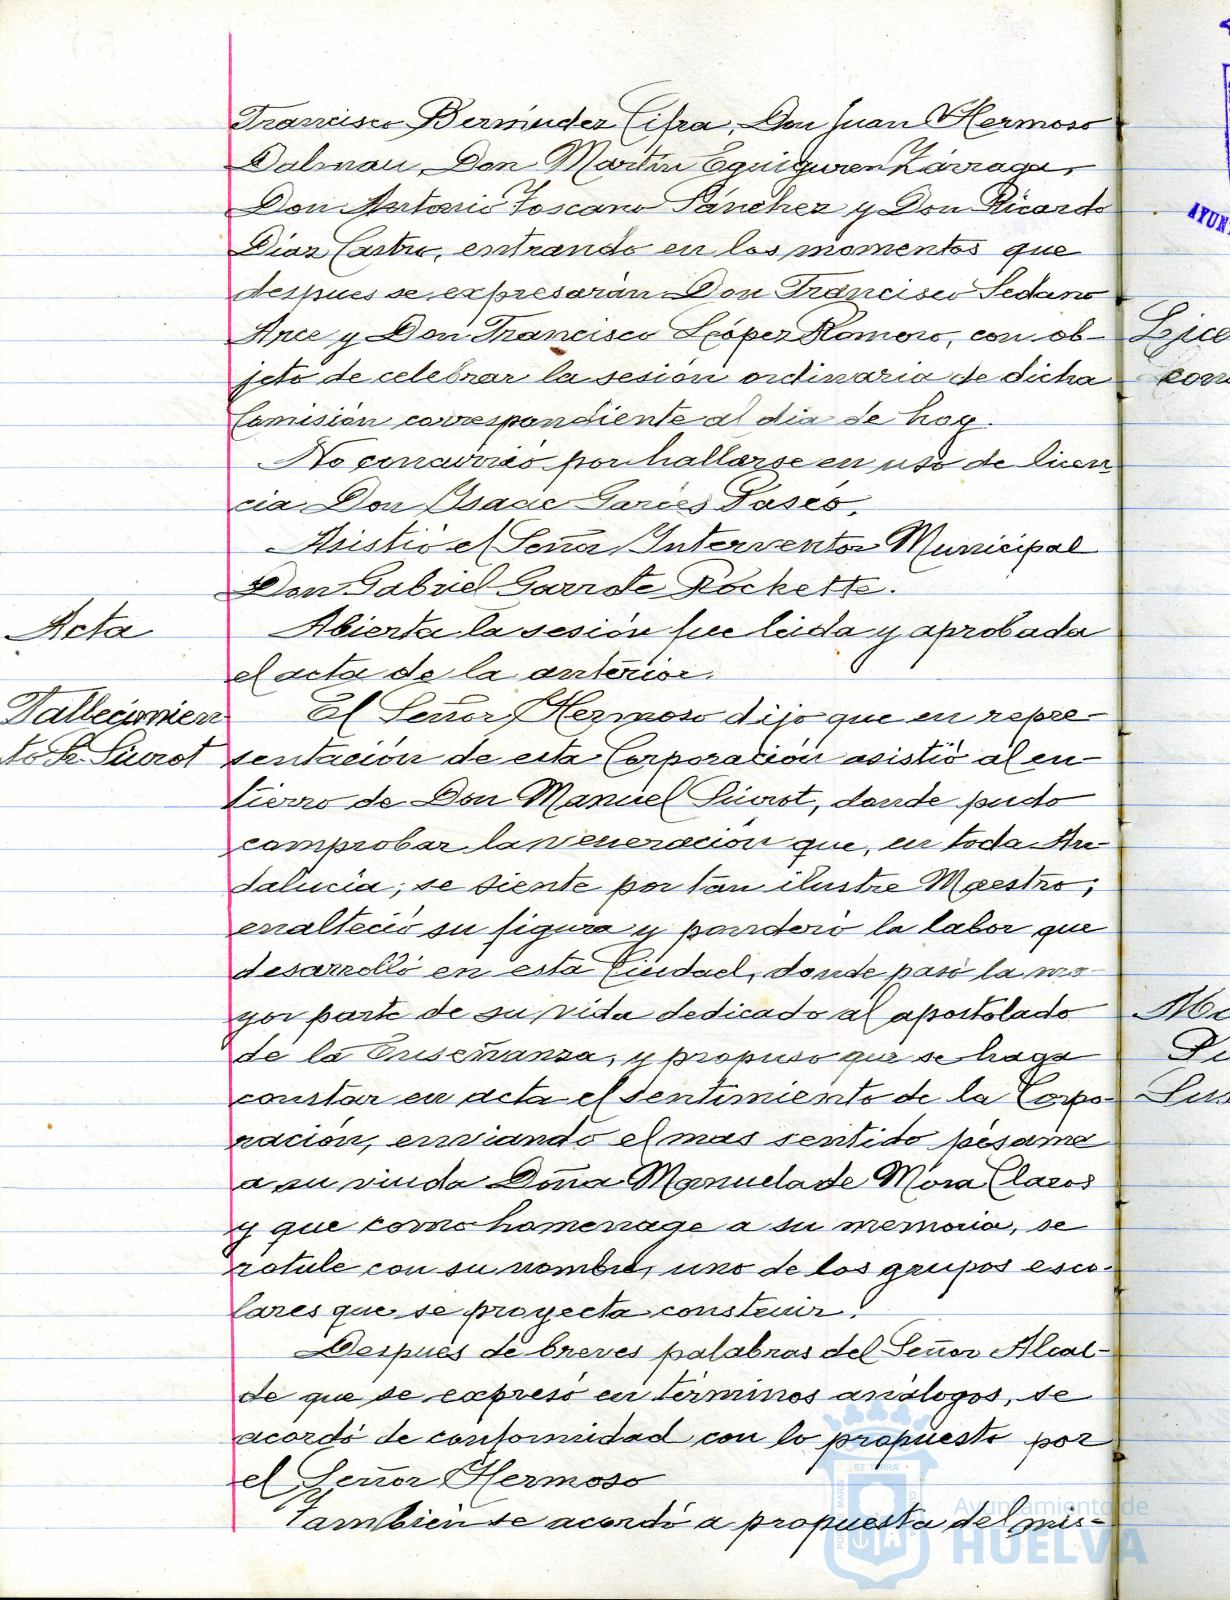 Francisco Bermúdez Cifra, Don Juan Hermoso
Dalmau, Don Martín Eguiguren Zárraga,
Don Antonio Toscano Sánchez y Don Ricardo
Díaz Castro, entrando en los momentos que
despues se expresarán Don Francisco Sedano
Arce y Don Francisco López Romero, con ob-
jeto de celebrar la sesión ordinaria de dicha
Comisión correspondiente al dia de hoy.
No concurrió por hallarse en uso de licen
cia Don Isaac Garcés
Asistió el Señor Interventor Municipal
Don Gabriel Garrote Rochette.
Acta
Abierta la sesión fue leida y aprobada
el acta de la anterior.
Fallecimien
to Sr. Siurot
El Señor Hermoso dijo que en repre-
sentación de esta Corporación asistió al en-
tierro de Don Manuel Siurot, donde pudo
comprobar la veneración que, en toda An-
dalucía, se siente por tan ilustre Maestro;
enalteció su figura y ponderó la labor que
desarrolló en esta Ciudad, donde pasó la ma-
yor parte de su vida dedicado al apostolado
de la Enseñanza, y propuso que se haga
constar en acta el sentimiento de la Corpo-
ración, enviando el mas sentido pésame
a su viuda Doña Manuela de Mora Claros
y que como homenage a su memoria, se
rotule con su nombre, uno de los grupos esco-
lares que se proyecta construir.
Después de breves palabras del Señor Alcal-
de que se expresó en términos análogos, se
acordó de conformidad con lo propuesto por
el Señor Hermoso
También se acordó a propuesta del mis-
Ayuntamiento de
HUELVA